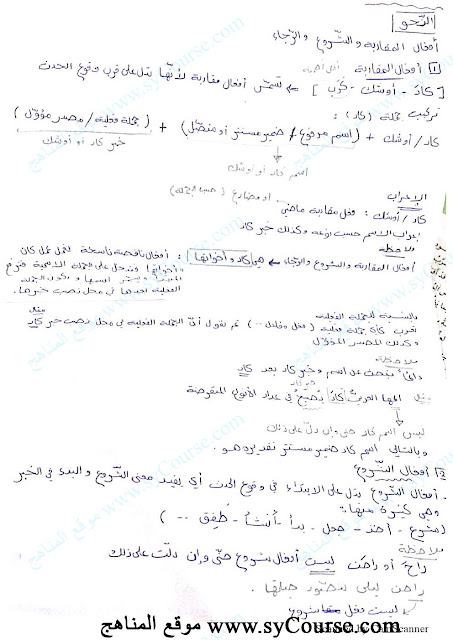 www.syCourse.com موقع المناهج
النّحو
أفعال المقاربة والشّروع والرّجاء
1 أفعال المقاربة
[ كادَ - أوشك - كَرَب ] ← تسمّى أفعال مقاربة لأنّها تدل على قرب وقوع الحدث
تركيب جملة (كاد) :
كاد / أوشك + (اسم مرفوع / ضمير مستتر أو متصل) + (جملة فعلية / مصدر مؤوّل)
خبر كاد أو أوشك
اسم كاد أو أوشك
الإعراب
أو مضارع (حسب الجملة)
كاد / أوشك : فعل مقاربة ماضي
إعراب الاسم حسب نوعه وكذلك خبر كاد
ملاحظة
أفعال المقاربة والشروع والرّجاء ← هي كاد وأخواتها : أفعال ناقصة ناسخة تعمل عمل كان
وأخواتها وتدخل على الجملة الاسمية فترفع
المبتدأ ويسمى اسمها وتكون الجملة
الفعلية بعدها في محل نصب خبرها.
بالنسبة للجملة الفعلية
تعرب كأي جملة فعلية (فعل وفاعل ..) ثم نقول أنّ الجملة الفعلية في محل نصب خبر كاد
وكذلك المصدر المؤوّل
ملاحظة
دائماً نبحث عن اسم وخبر كاد بعد كاد
خبر كاد
مثال المها العربيّ كادَ يُصبحُ في عداد الأنواع المنقرضة
ليس اسم كاد حتى وإن دلّ على ذلك
وبالتالي اسم كاد ضمير مستتر تقديره هو.
2 أفعال الشّروع
- أفعال الشّروع تدل على الابتداء في وقوع الحدث أي تفيد معنى الشّروع والبدء في الخبر
وهي كثيرة منها:
(شرع - أخذ - جعل - بدأ - أنشأ - طفق ..)
ملاحظة
راحَ أو راحت ليست أفعال شروع حتّى وإن دلّت على ذلك
راحت ليلى
ليست فعل شروع
www.syCourse.com موقع المناهج